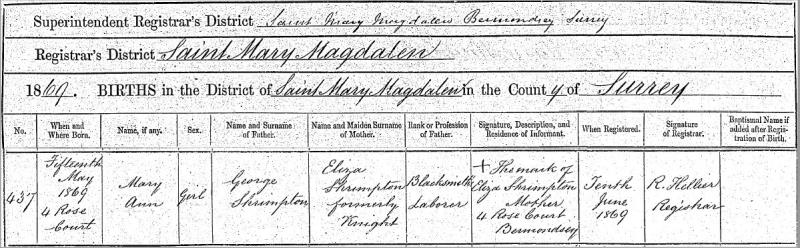 Superintendent Registrar's District Saint Mary Magdalen Bermondsey Surrey
Registrar's District Saint Mary Magdalen
1869. BIRTHS in the District of Saint Mary Magdalen in the County of Surrey
No.
When and Where Born.
Name, if any.
Sex.
Name and Surname of Father.
Name and Maiden Surname of Mother.
Rank or Profession of Father.
Signature, Description, and Residence of Informant.
When Registered.
Signature of Registrar.
Baptismal Name if added after Registration of Birth.
437
Fifteenth
May
1869
4 Rose
Court
Mary
Ann
Girl
George
Shrimpton
Eliza
Shrimpton
formerly
Knight
Blacksmiths
Laborer
+ The mark of
Eliza Shrimpton
Mother
4 Rose Court
Bermondsey
Tenth
June
1869
R. Hellier
Registrar